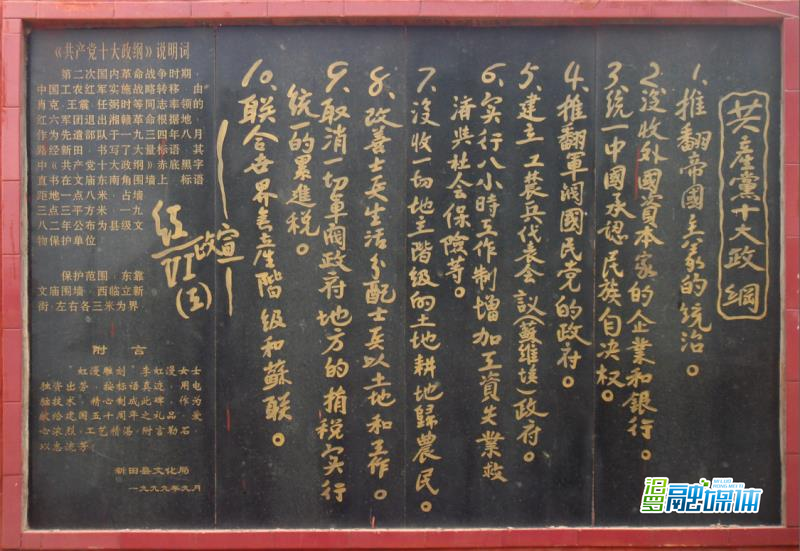 共產黨十大政綱
1.推翻帝國主義的統治。
2.沒收外國資本家的企業和銀行。
3.統一中國承認民族自决权。
4.推翻軍阀國民党的政府。
5.建立工農兵代表会議(蘇維埃)政府。
6.实行八小時工作制增加工資失業救
济與社会保險等。
7.沒收一切地主階級的土地耕地歸農民。
8.改善士兵生活分配士兵以土地和工作。
9.取消一切軍阀政府地方的捐税实行
統一的累進税。
10.联合世界無產階級和蘇联。
红
VI
(五)
政宣
《共产党十大政纲》说明词
第二次国内革命战争时期,
中国工农红军实施战略转移,由
肖克、王震、任弼时等同志率领的
红六军团退出湘赣革命根据地,
作为先遣部队于一九三四年八月
路经新田,书写了大量标语,其
中《共产党十大政纲》赤底黑字
直书在文庙东南角围墙上,标语
距地一点八米,占墙
三点三平方米,一九
八二年公布为县级文
物保护单位
保护范围,东靠
文庙围墙,西临立新
街,左右各三米为界.
附 言
"虹漫雕刻"李虹漫女士
独资出劳,按标语真迹,用电
脑技术,精心制成此碑,作为
献给建国五十周年之礼品,爱
心浓烈,工艺精湛,附言勒石,
以志流芳!
新田县文化局
一九九九年九月
融媒体